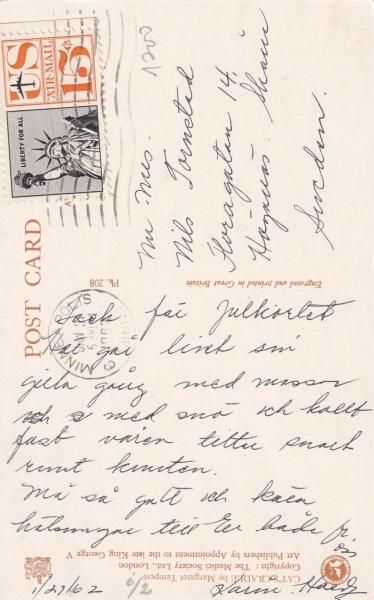 1200
US
AIR MAIL
15c
LIBERTY FOR ALL
Mr Mrs.
Nils Tornstad
Floragatan 14.
Höganäs. Skåne
Sweden.
POST CARD
Pk. 208
Engraved and printed in Great Britain
MINNEAPOLIS
MINN.
Tack för Julkortet
Här går livet sin
gilla gång med massor
och med snö och kallt
fast våren tittar snart
runt knuten.
Må så gott och kära
hälsningar till Er båda fr.
oss
1/27/62
6/2
Harry
CAT'S CRADLE by Margaret Tempest
Copyright: The Medici Society Ltd., London
Art Publishers by Appointment to the late King George V